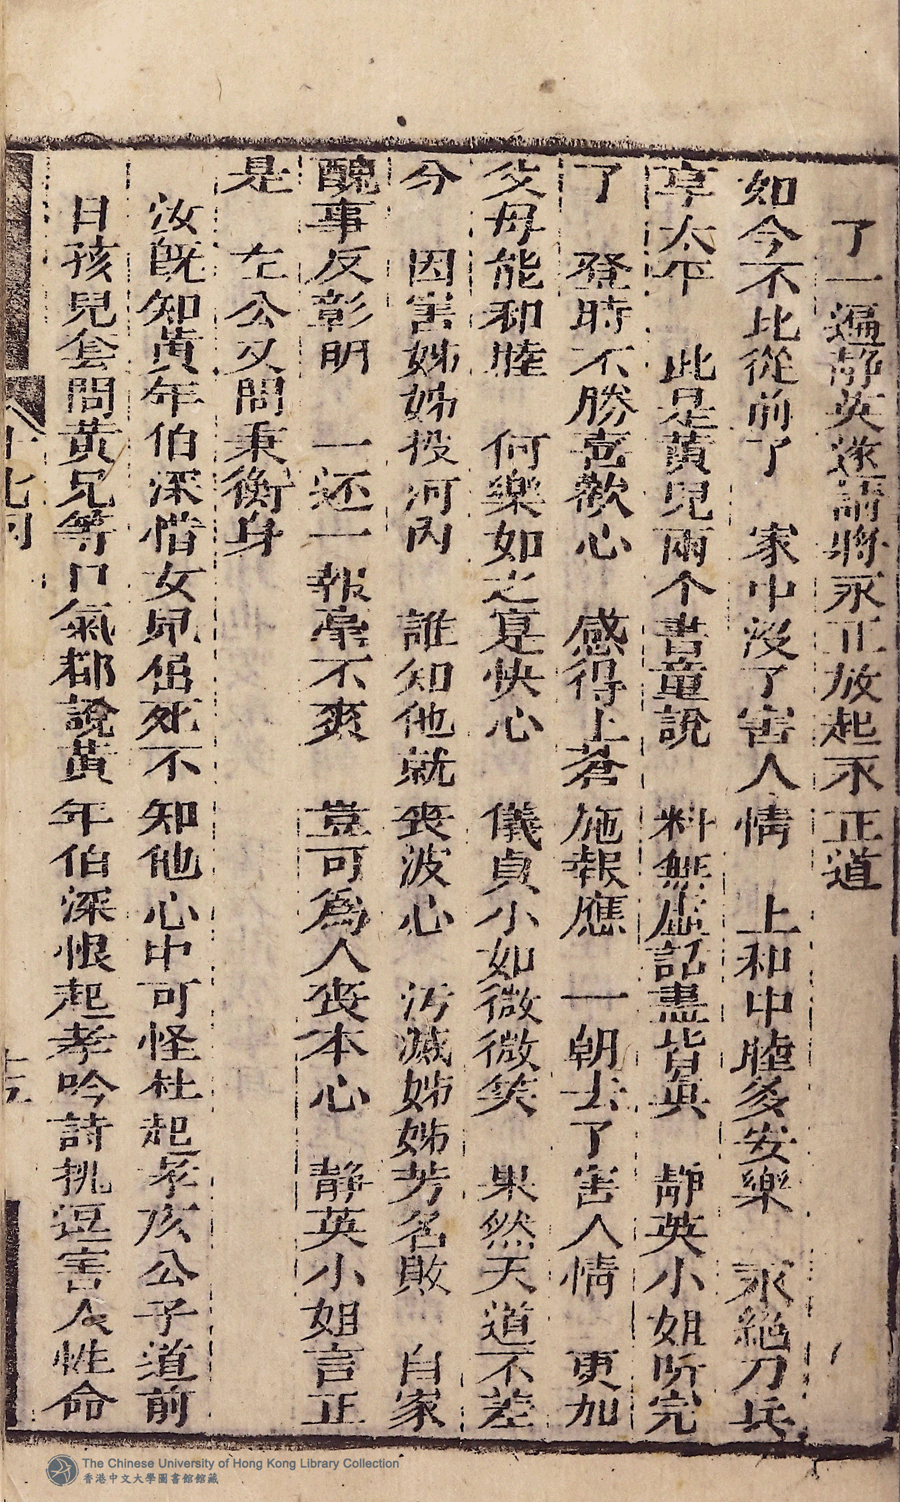 了一遍靜英遂請將永正放起永正道
如今不比從前了　家中沒了害人情　上和中睦多安樂　永絕刀兵
享太平　此是黃兒兩个書童說　料無虛話盡皆真　靜英小姐听完
了　登時不勝喜歡心　感得上蒼施報應　一朝去了害人情　更加
父母能和睦　何樂如之寔快心　儀貞小如微微笑　果然天道不差
分　因害姊姊投河內　誰知他就喪波心　污滅姊姊芳名敗　自家
醜事反彰明　一还一報毫不爽　豈可為人喪本心　靜英小姐言正
是　左公又問秉衡身
汝既知黃年伯深惜女兒屈死不知他心中可怪杜起孝亥公子道前
日孩兒套問黃兄等口氣都說黃年伯深恨起孝吟詩挑逗害人性命
十五
The Chinese University of Hong Kong Library Collection
香港中文大學圖書館館藏